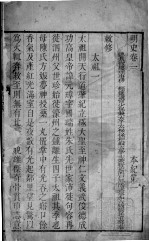 明史卷一　本紀第一
敕修
太祖
太祖開天行道肇紀立極大聖至神仁文義武俊德成
功高皇帝諱元璋字國瑞姓朱氏先世家沛徙句容再
徙泗州父世珍始徙濠州之鍾離生四子太祖其季也
母陳氏方娠夢神授藥一丸置掌中有光吞之寤口餘
香氣及產紅光滿室自是夜數有光起鄰里望見驚以
為火輒奔救至則無有比長姿貌雄傑奇骨貫頂志意